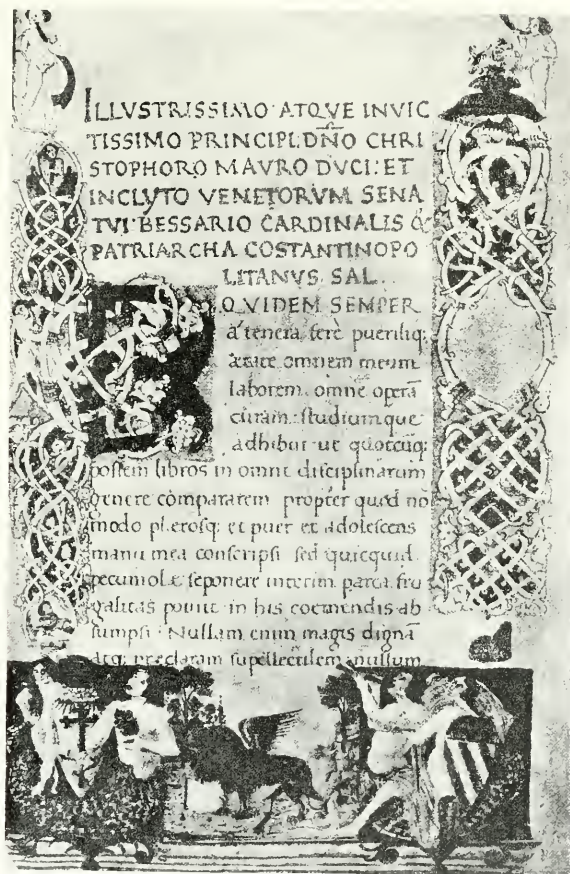 ILLVSTRISSIMO ATQVE INVIC
TISSIMO PRINCIPI: DÑO CHRI
STOPHORO MAVRO DVCI: ET
INCLYTO VENETORVM SENA
TVI BESSARIO CARDINALIS &
PATRIARCHA COSTANTINOPO
LITANVS. SAL.
EQVIDEM SEMPER
a tenera fere puerili q;
ætate omnem meum
laborem. omnē operā
curam. studiumque
adhibui ut quotcūq;
possem libros in omni disciplinarum
genere compararem propter quod nō
modo plerosq; et puer et adolescens
manu mea conscripsi sed quicquid
pecuniolæ seponere interim parca fru
galitas potuit in his coemendis ab
sumpsi. Nullam enim magis dignā
atq; præclaram supellectilem nullum